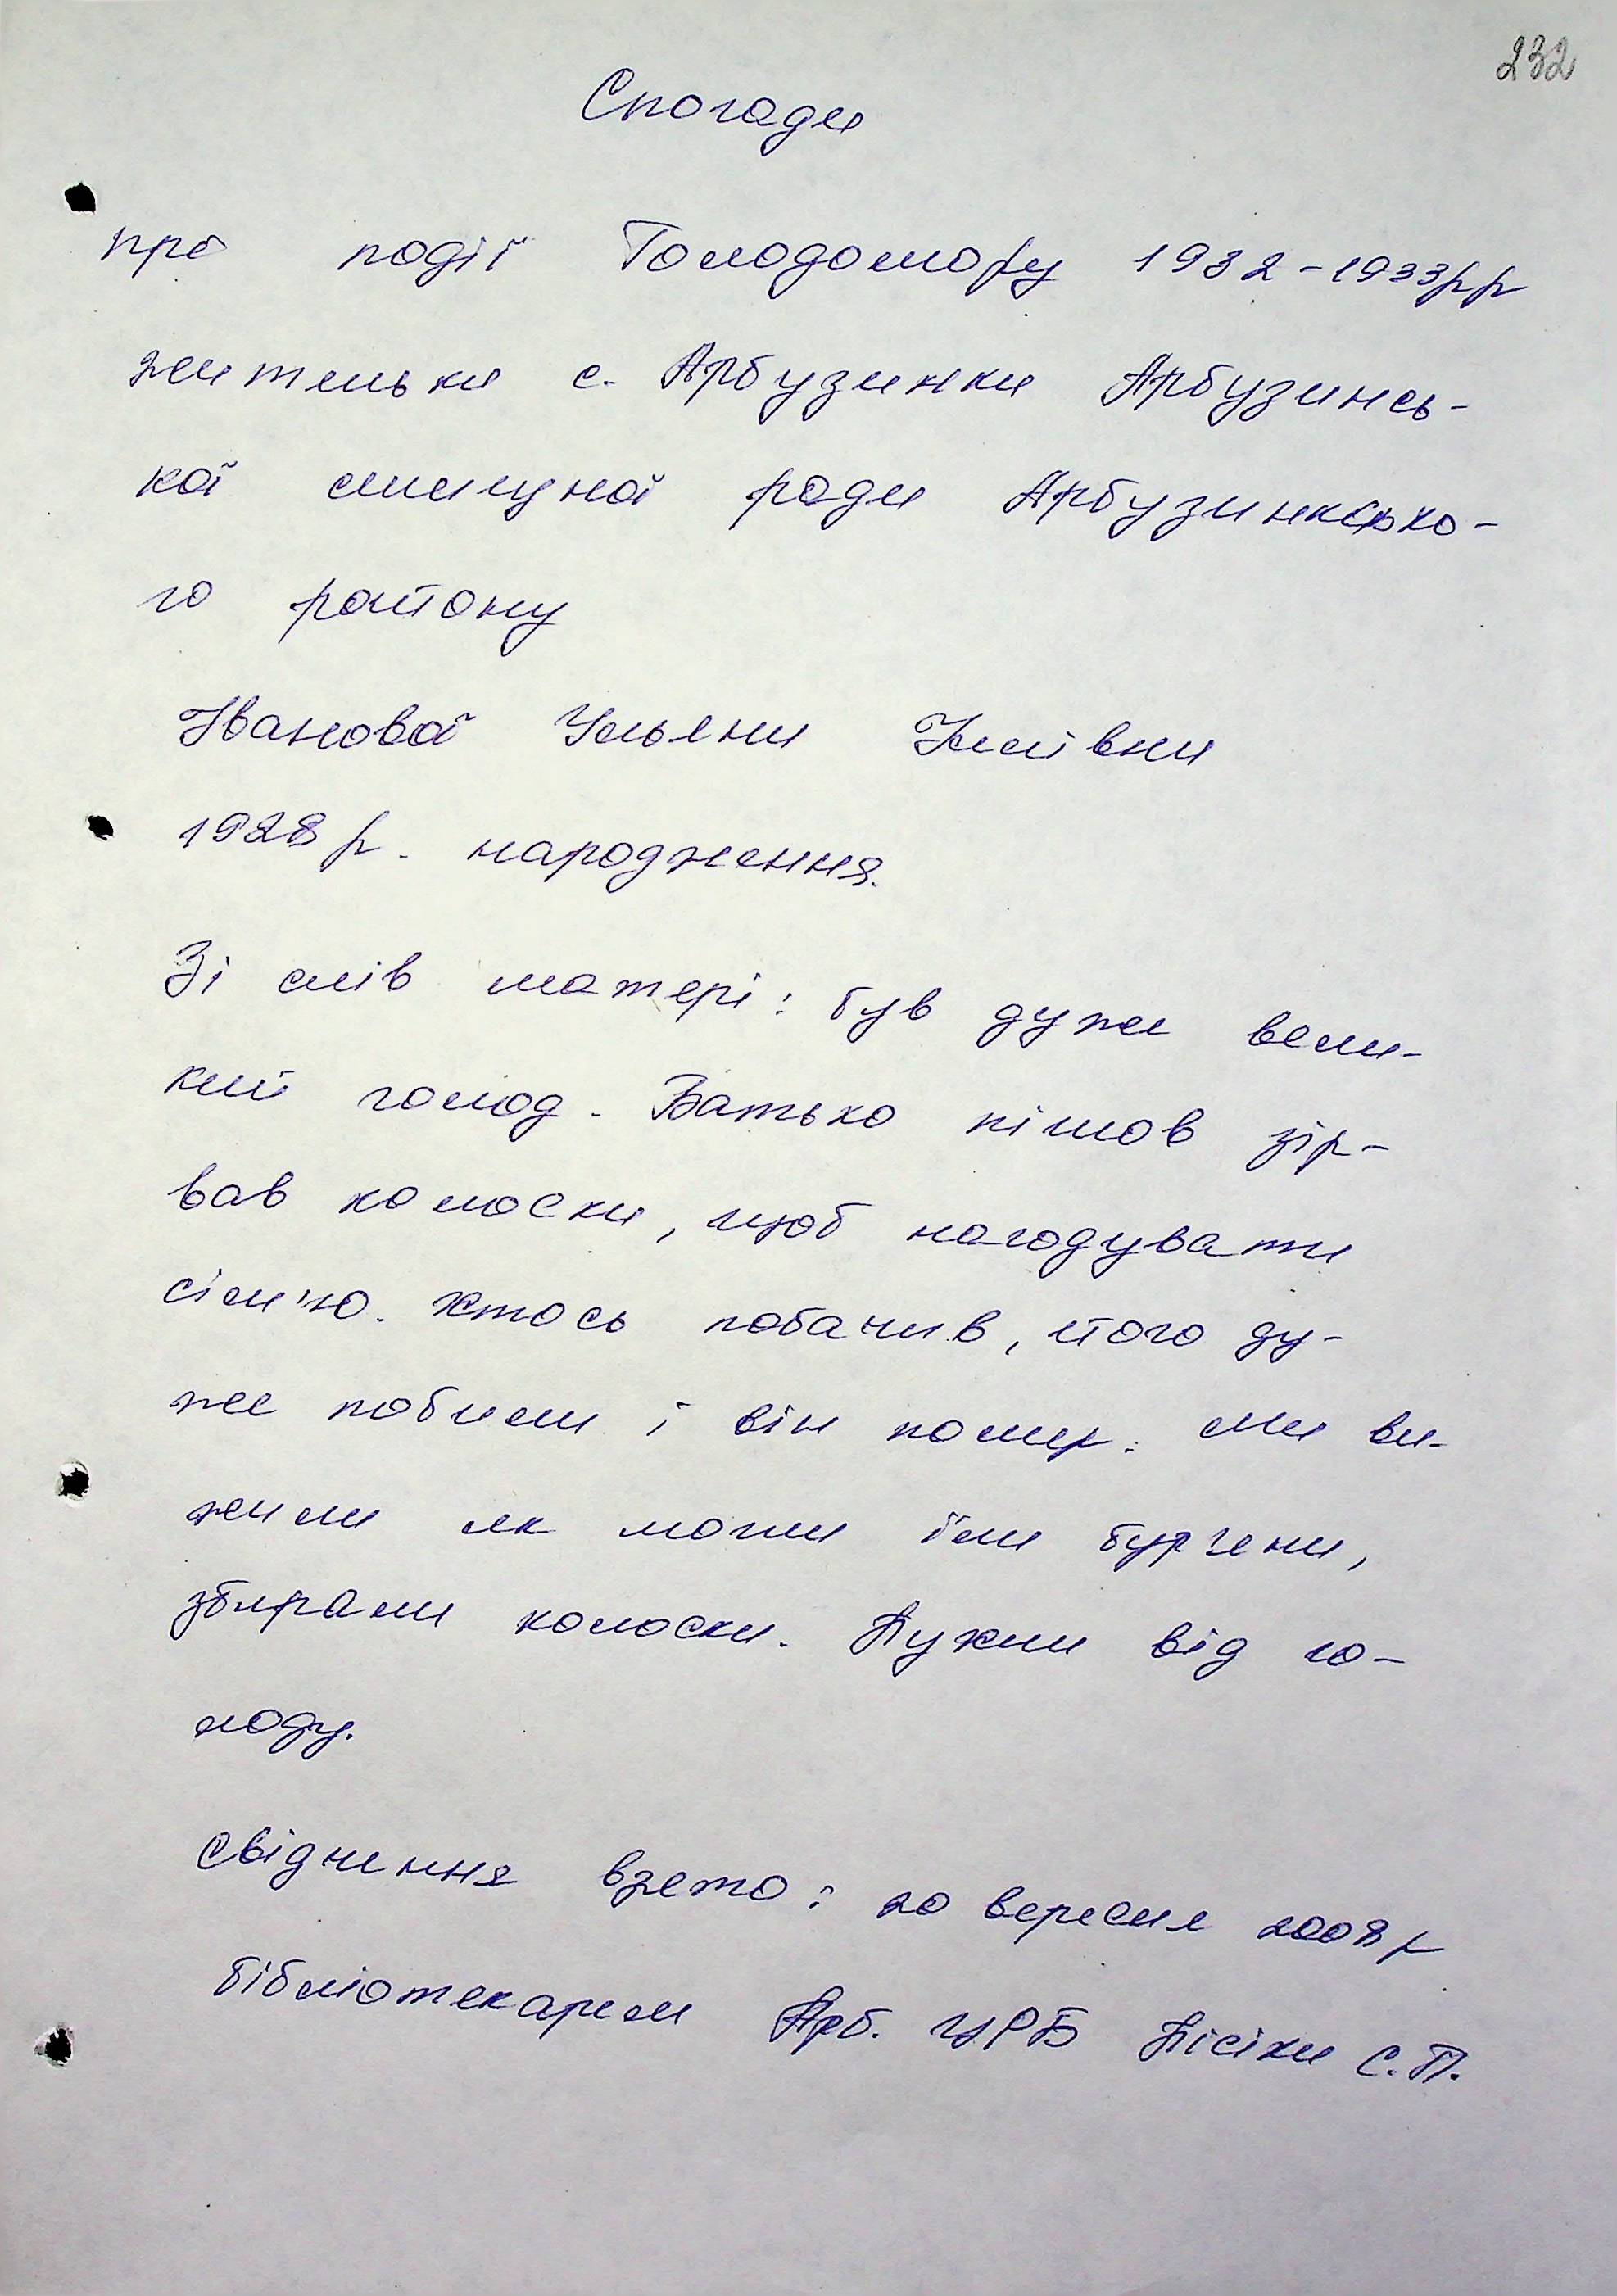 232
Спогади
про події Голодомору 1932-1933рр
жительки с. Арбузинки Арбузинсь-
кої селищної ради Арбузинсько-
го району
Іванової Уляни
1928 р. народження.
Зі слів матері: був дуже вели-
кий голод. Батько пішов зір-
вав колоски, щоб нагодувати
сім'ю. Хтось побачив, його ду-
же побили і він помер. Ми ви-
жили як могли їли бур'яни,
збирали колоски. Пухли від го-
лоду.
Свідчення взято: 20 вересня 2008р
бібліотекарем Арб. ЦРБ С.П.